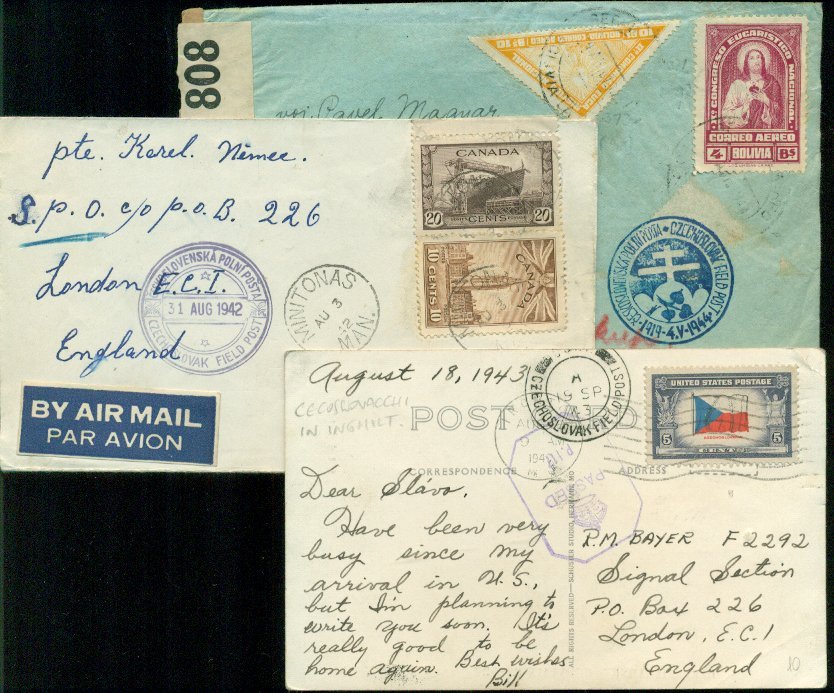 808
voj. Pavel Magyar
1er CONGRESO EUCARISTICO NACIONAL
CORREO AEREO
4 BOLIVIA Bs
CZECHOSLOVAK FIELD POST
1919-4.V-1944
pte. Karel. Němec.
S.P.O. c/o P.O.B. 226
London E.C.I.
England
ČESKOSLOVENSKÁ POLNÍ POŠTA
31 AUG 1942
CZECHOSLOVAK FIELD POST
MINITONAS
AU 3
42
MAN.
CANADA
20 CENTS 20
CANADA
10 CENTS
BY AIR MAIL
PAR AVION
August 18, 1943
CECOSLOVACCHI
IN INGHILT.
POST
CZECHOSLOVAK FIELD POST
A
19 SP
43
UNITED STATES POSTAGE
5 5
CORRESPONDENCE
ADDRESS
PASSED
Dear Slávo,
Have been very
busy since my
arrival in U.S.,
but I'm planning to
write you soon. It's
really good to be
home again. Best wishes
Bill
ALL RIGHTS RESERVED—SCHUSTER STUDIO, HERMANN, MO
R.M. BAYER F 2292
Signal Section
P.O. Box 226
London, E.C.1
England
10